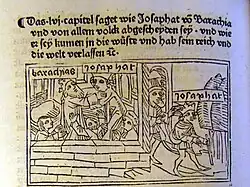 Das .lvj. capitel saget wie Josaphat vō Barachia
vnd von allem volck abgescheyden sey. vnd wie
er sey kumen in die wüste vnd hab sein reich vnd
die welt verlassen ꝛc.
barachias Josaphat
Josaphat